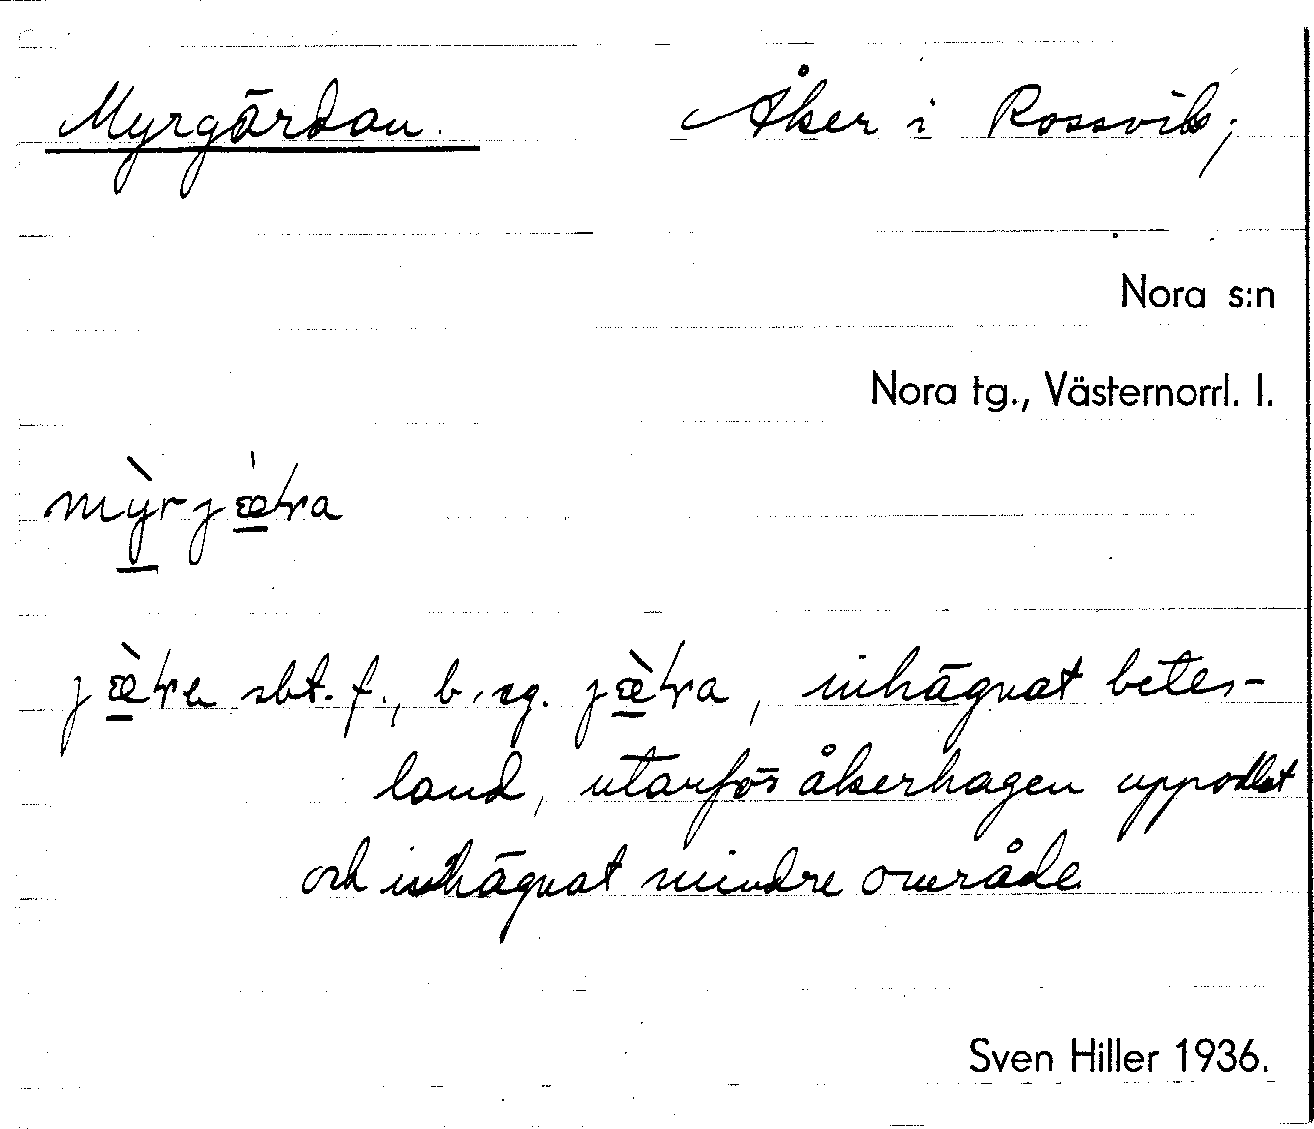 Myrgärdan. Åker i Rossvik;
Nora s:n
Nora tg., Västernorrl. l.
sbt. f., b. sg. inhägnat betes-
land, utanför åkerhagen uppodlat
och inhägnat mindre område
Sven Hiller 1936.